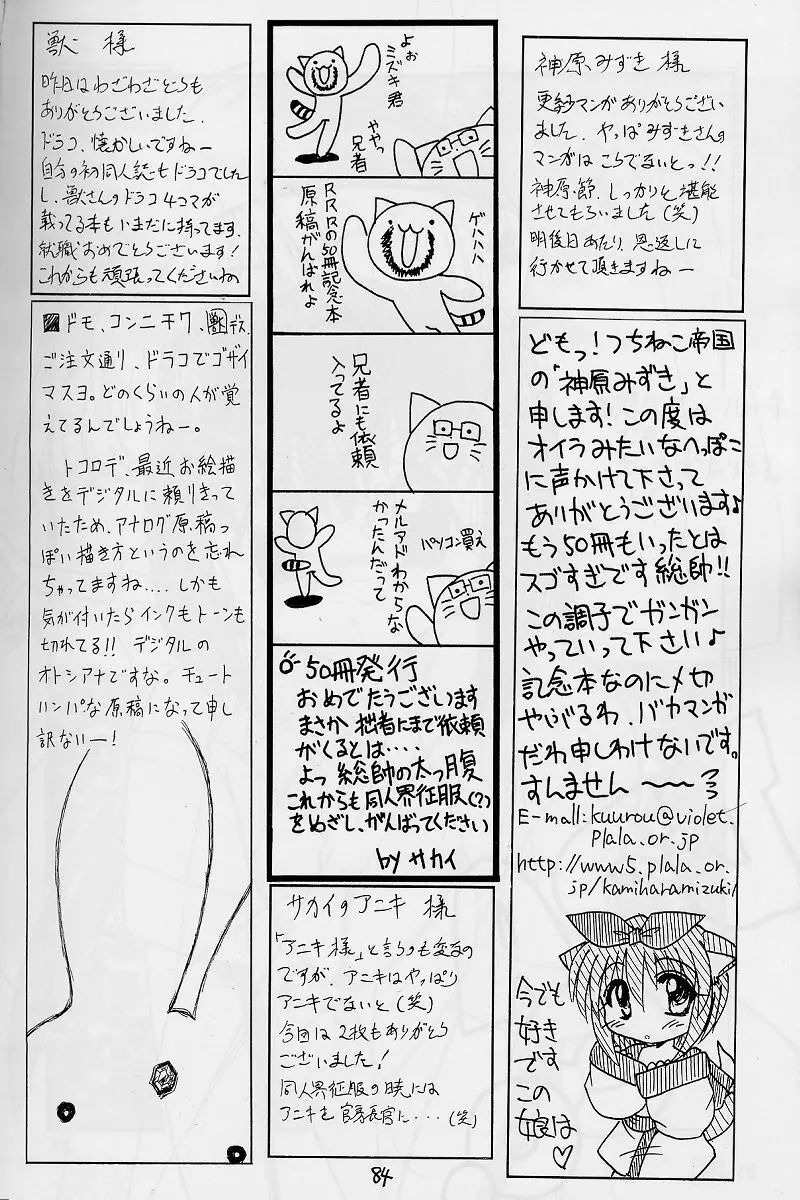 神原みずき 様
更紗マンガありがとうござい
ました。やっぱみずきさんの
マンガはこうでないとっ!!
神原節、しっかりと堪能
させてもらいました(笑)
明後日あたり、恩返しに
行かせて頂きますねー
どもっ!つちねこ帝国
の「神原みずき」と
申します!この度は
オイラみたいなへっぽこ
に声かけて下さって
ありがとうございます♪
もう50冊もいったとは
スゴすぎです総帥!!
この調子でガンガン
やっていって下さい♪
記念本なのに〆切
やぶるわ、バカマンガ
だわ申しわけないです。
すんません〜〜
E-mail:kuurou@violet.
plala.or.jp
http://www5.plala.or.
jp/kamiharamizuki/
今でも
好き
です
この
娘は♡
よぉ
ミズキ君
ややっ
兄者
ゲハハハ
RRRの50冊記念本
原稿がんばれよ
兄者にも依頼
入ってるよ
メルアドわからな
かったんだって
パソコン買え
50冊発行
おめでたうございます
まさか拙者にまで依頼
がくるとは・・・・
よっ総帥の太っ腹
これからも同人界征服(?)
をめざし、がんばってください
by サカイ
サカイのアニキ 様
「アニキ様」と言うのも変なの
ですが、アニキはやっぱり
アニキでないと(笑)
今回は2枚もありがとう
ございました!
同人界征服の暁には
アニキを官房長官に・・・(笑)
獣 様
昨日はわざわざどうも
ありがとうございました。
ドラコ、懐かしいですねー
自分の初同人誌もドラコでした
し、獣さんのドラコ4コマが
載ってる本もいまだに持ってます。
就職おめでとうございます!
これからも頑張ってくださいね
ドモ、コンニチワ、獣デス。
ご注文通り、ドラコでゴザイ
マスヨ。どのくらいの人が覚
えてるんでしょうねー。
トコロデ、最近お絵描
きをデジタルに頼りきって
いたため、アナログ原稿っ
ぽい描き方というのを忘れ
ちゃってますね.... しかも
気が付いたらインクもトーンも
切れてる!! デジタルの
オトシアナですな。チュート
ハンパな原稿になって申し
訳ないー!
84